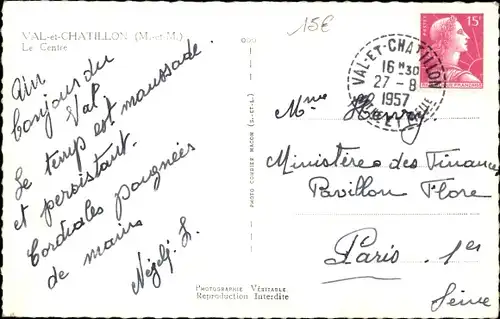 VAL-et-CHATILLON (M.-et-M.)
Le Centre
15€
Bonjour du
Val.
Le temps est maussade
et persistant.
Cordiales poignées
de mains
PHOTO COMBIER MACON (S.-et-L.)
VAL-ET-CHATILLON
16 H 30
27 - 8
1957
POSTES
15F
Mme Henry
Ministères des Finances
Pavillon Flore
Paris 1er
Seine
PHOTOGRAPHIE VÉRITABLE
Reproduction Interdite